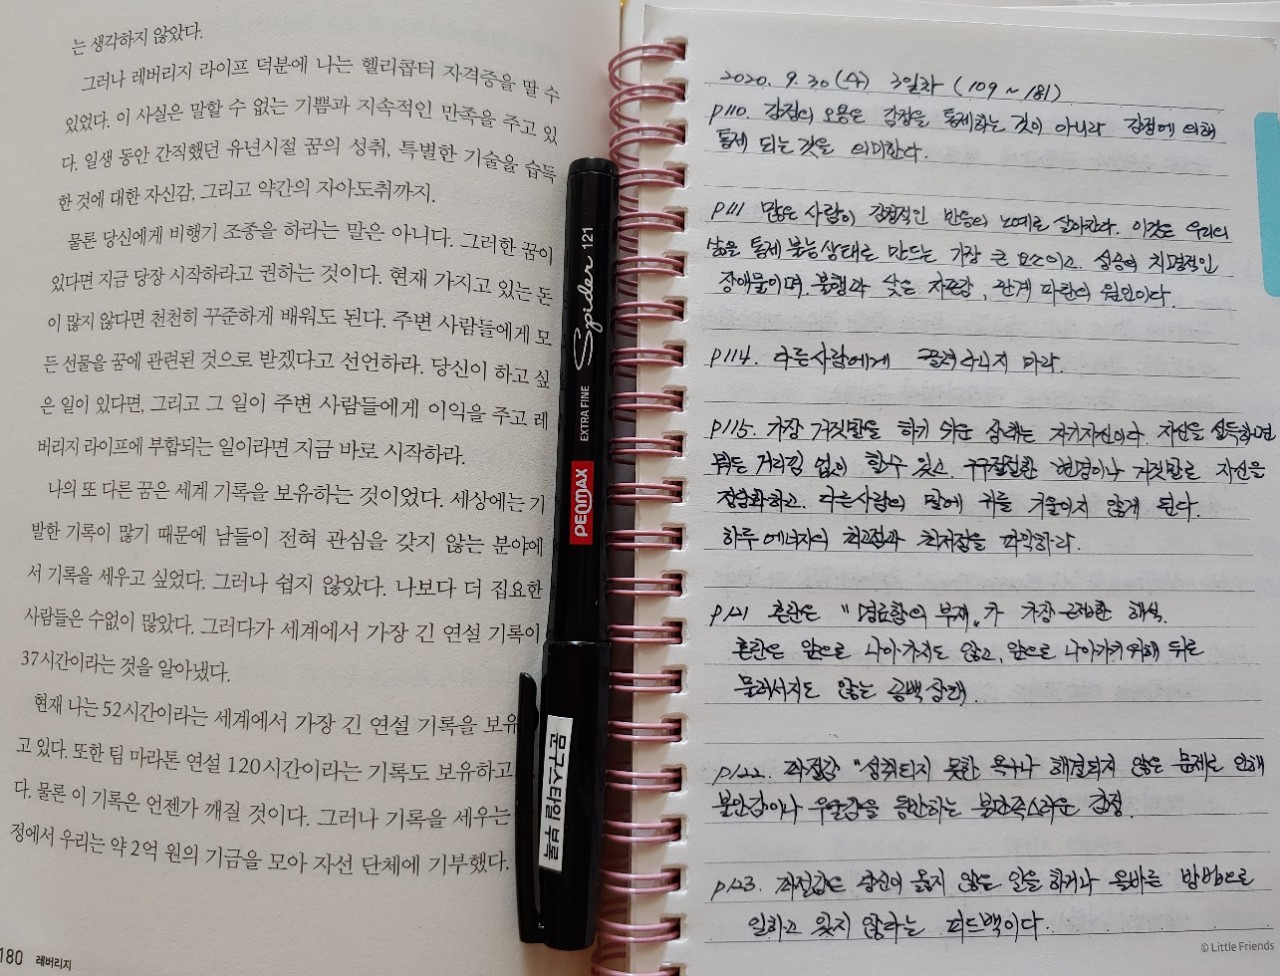 는 생각하지 않았다.
그러나 레버리지 라이프 덕분에 나는 헬리콥터 자격증을 딸 수
있었다. 이 사실은 말할 수 없는 기쁨과 지속적인 만족을 주고 있
다. 일생 동안 간직했던 유년시절 꿈의 성취, 특별한 기술을 습득
한 것에 대한 자신감, 그리고 약간의 자아도취까지.
물론 당신에게 비행기 조종을 하라는 말은 아니다. 그러한 꿈이
있다면 지금 당장 시작하라고 권하는 것이다. 현재 가지고 있는 돈
이 많지 않다면 천천히 꾸준하게 배워도 된다. 주변 사람들에게 모
든 선물을 꿈에 관련된 것으로 받겠다고 선언하라. 당신이 하고 싶
은 일이 있다면, 그리고 그 일이 주변 사람들에게 이익을 주고 레
버리지 라이프에 부합되는 일이라면 지금 바로 시작하라.
나의 또 다른 꿈은 세계 기록을 보유하는 것이었다. 세상에는 기
발한 기록이 많기 때문에 남들이 전혀 관심을 갖지 않는 분야에
서 기록을 세우고 싶었다. 그러나 쉽지 않았다. 나보다 더 집요한
사람들은 수없이 많았다. 그러다가 세계에서 가장 긴 연설 기록이
37시간이라는 것을 알아냈다.
현재 나는 52시간이라는 세계에서 가장 긴 연설 기록을 보유
고 있다. 또한 팀 마라톤 연설 120시간이라는 기록도 보유하고
다. 물론 이 기록은 언젠가 깨질 것이다. 그러나 기록을 세우는
정에서 우리는 약 2억 원의 기금을 모아 자선 단체에 기부했다.
180 레버리지
Spider 121
EXTRA FINE
PENMAX
문구스타일 부록
2020. 9. 30 (수) 3일차 (109 ~ 181)
p110. 감정의 오용은 감정을 통제하는 것이 아니라 감정에 의해
통제 되는 것을 의미한다.
p111 많은 사람이 감정적인 반응의 노예로 살아간다. 이것은 우리의
삶을 통제 불능 상태로 만드는 가장 큰 요소이고. 성공의 치명적인
장애물이며. 불행과 낮은 자존감, 관계 파탄의 원인이다.
p114. 다른사람에게 끌려다니지 마라.
p115. 가장 거짓말을 하기 쉬운 상대는 자기자신이다. 자신을 설득하면
뭐든 거리낌 없이 할수 있고. 구구절절한 변명이나 거짓말로 자신을
정당화하고. 다른사람의 말에 귀를 기울이지 않게 된다.
하루 에너지의 최고점과 최저점을 파악하라.
p121 혼란은 "명료함의 부재"가 가장 근접한 해석.
혼란은 앞으로 나아가지도 않고, 앞으로 나아가기 위해 뒤로
물러서지도 않는 공백 상태.
p122. 좌절감 "성취되지 못한 욕구나 해결되지 않은 문제로 인해
불안감이나 우울감을 동반하는 불만족스러운 감정.
p123. 좌절감은 당신이 옳지 않은 일을 하거나 올바른 방법으로
일하고 있지 않다는 피드백이다.
© Little Friends